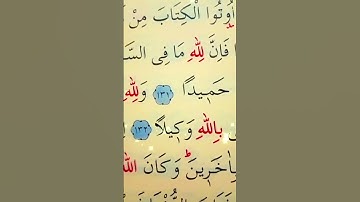 اُو۫تُوا الْكِتَابَ مِنْ
فَاِنَّ لِلّٰهِ مَا فِى
حَم۪يدًا ﴿١٣١﴾ وَلِلّٰهِ
بِاللّٰهِ وَك۪يلًا ﴿١٣٢﴾
بِاٰخَر۪ينَۜ وَكَانَ اللّٰهُ